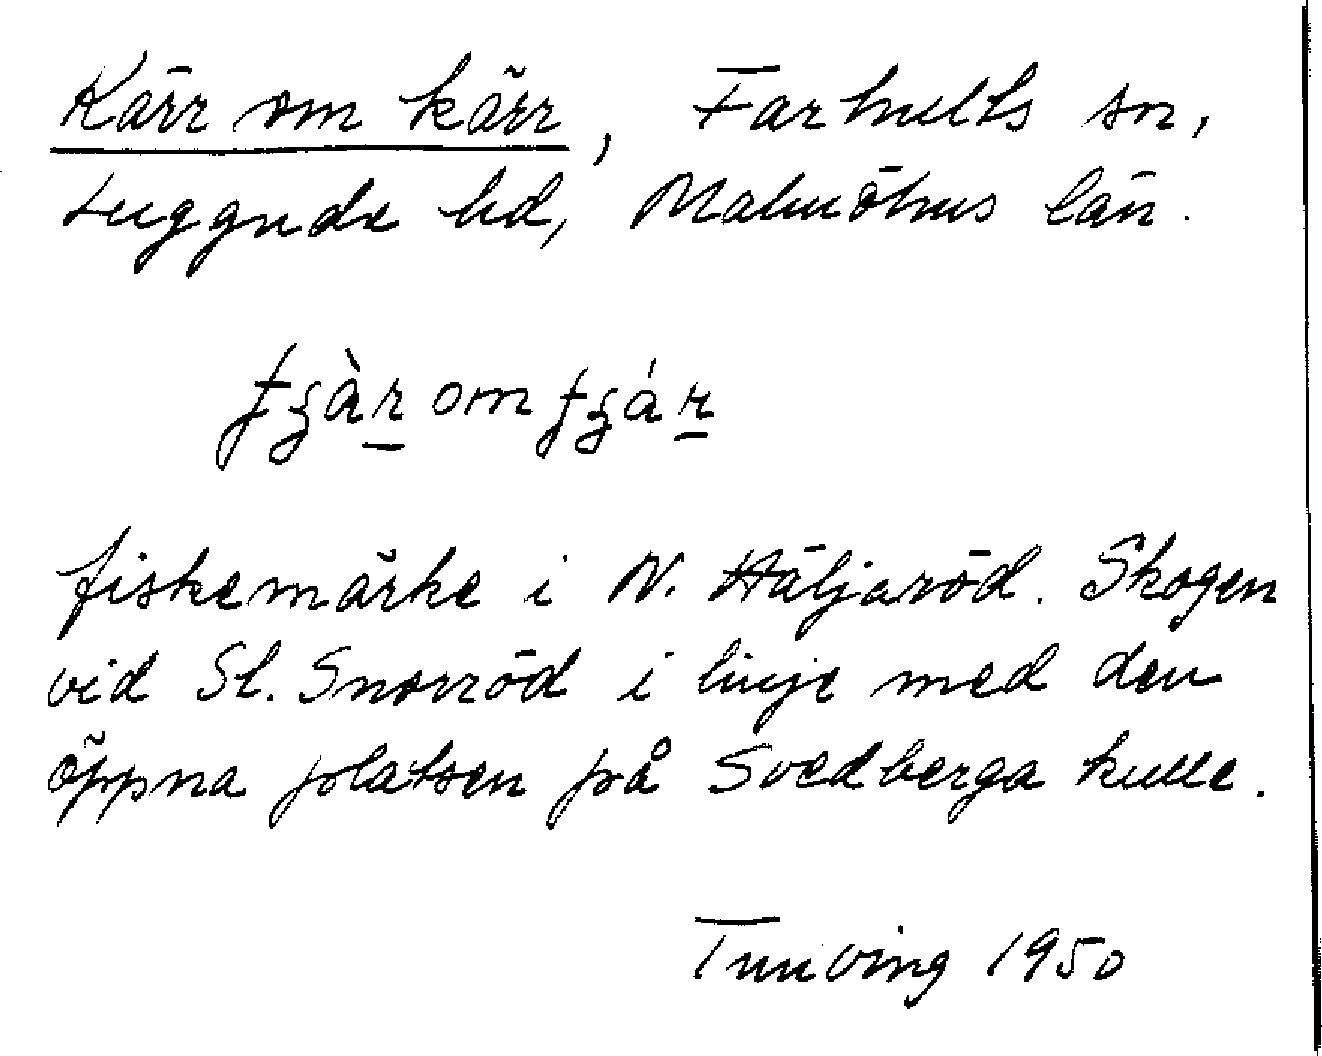 Kärr om kärr, Farhults sn,
Luggude hd, Malmöhus län.
fiskemärke i N. Häljaröd. Skogen
vid St. Snorröd i linje med den
öppna platsen på Svedberga kulle.
Tuneving 1950